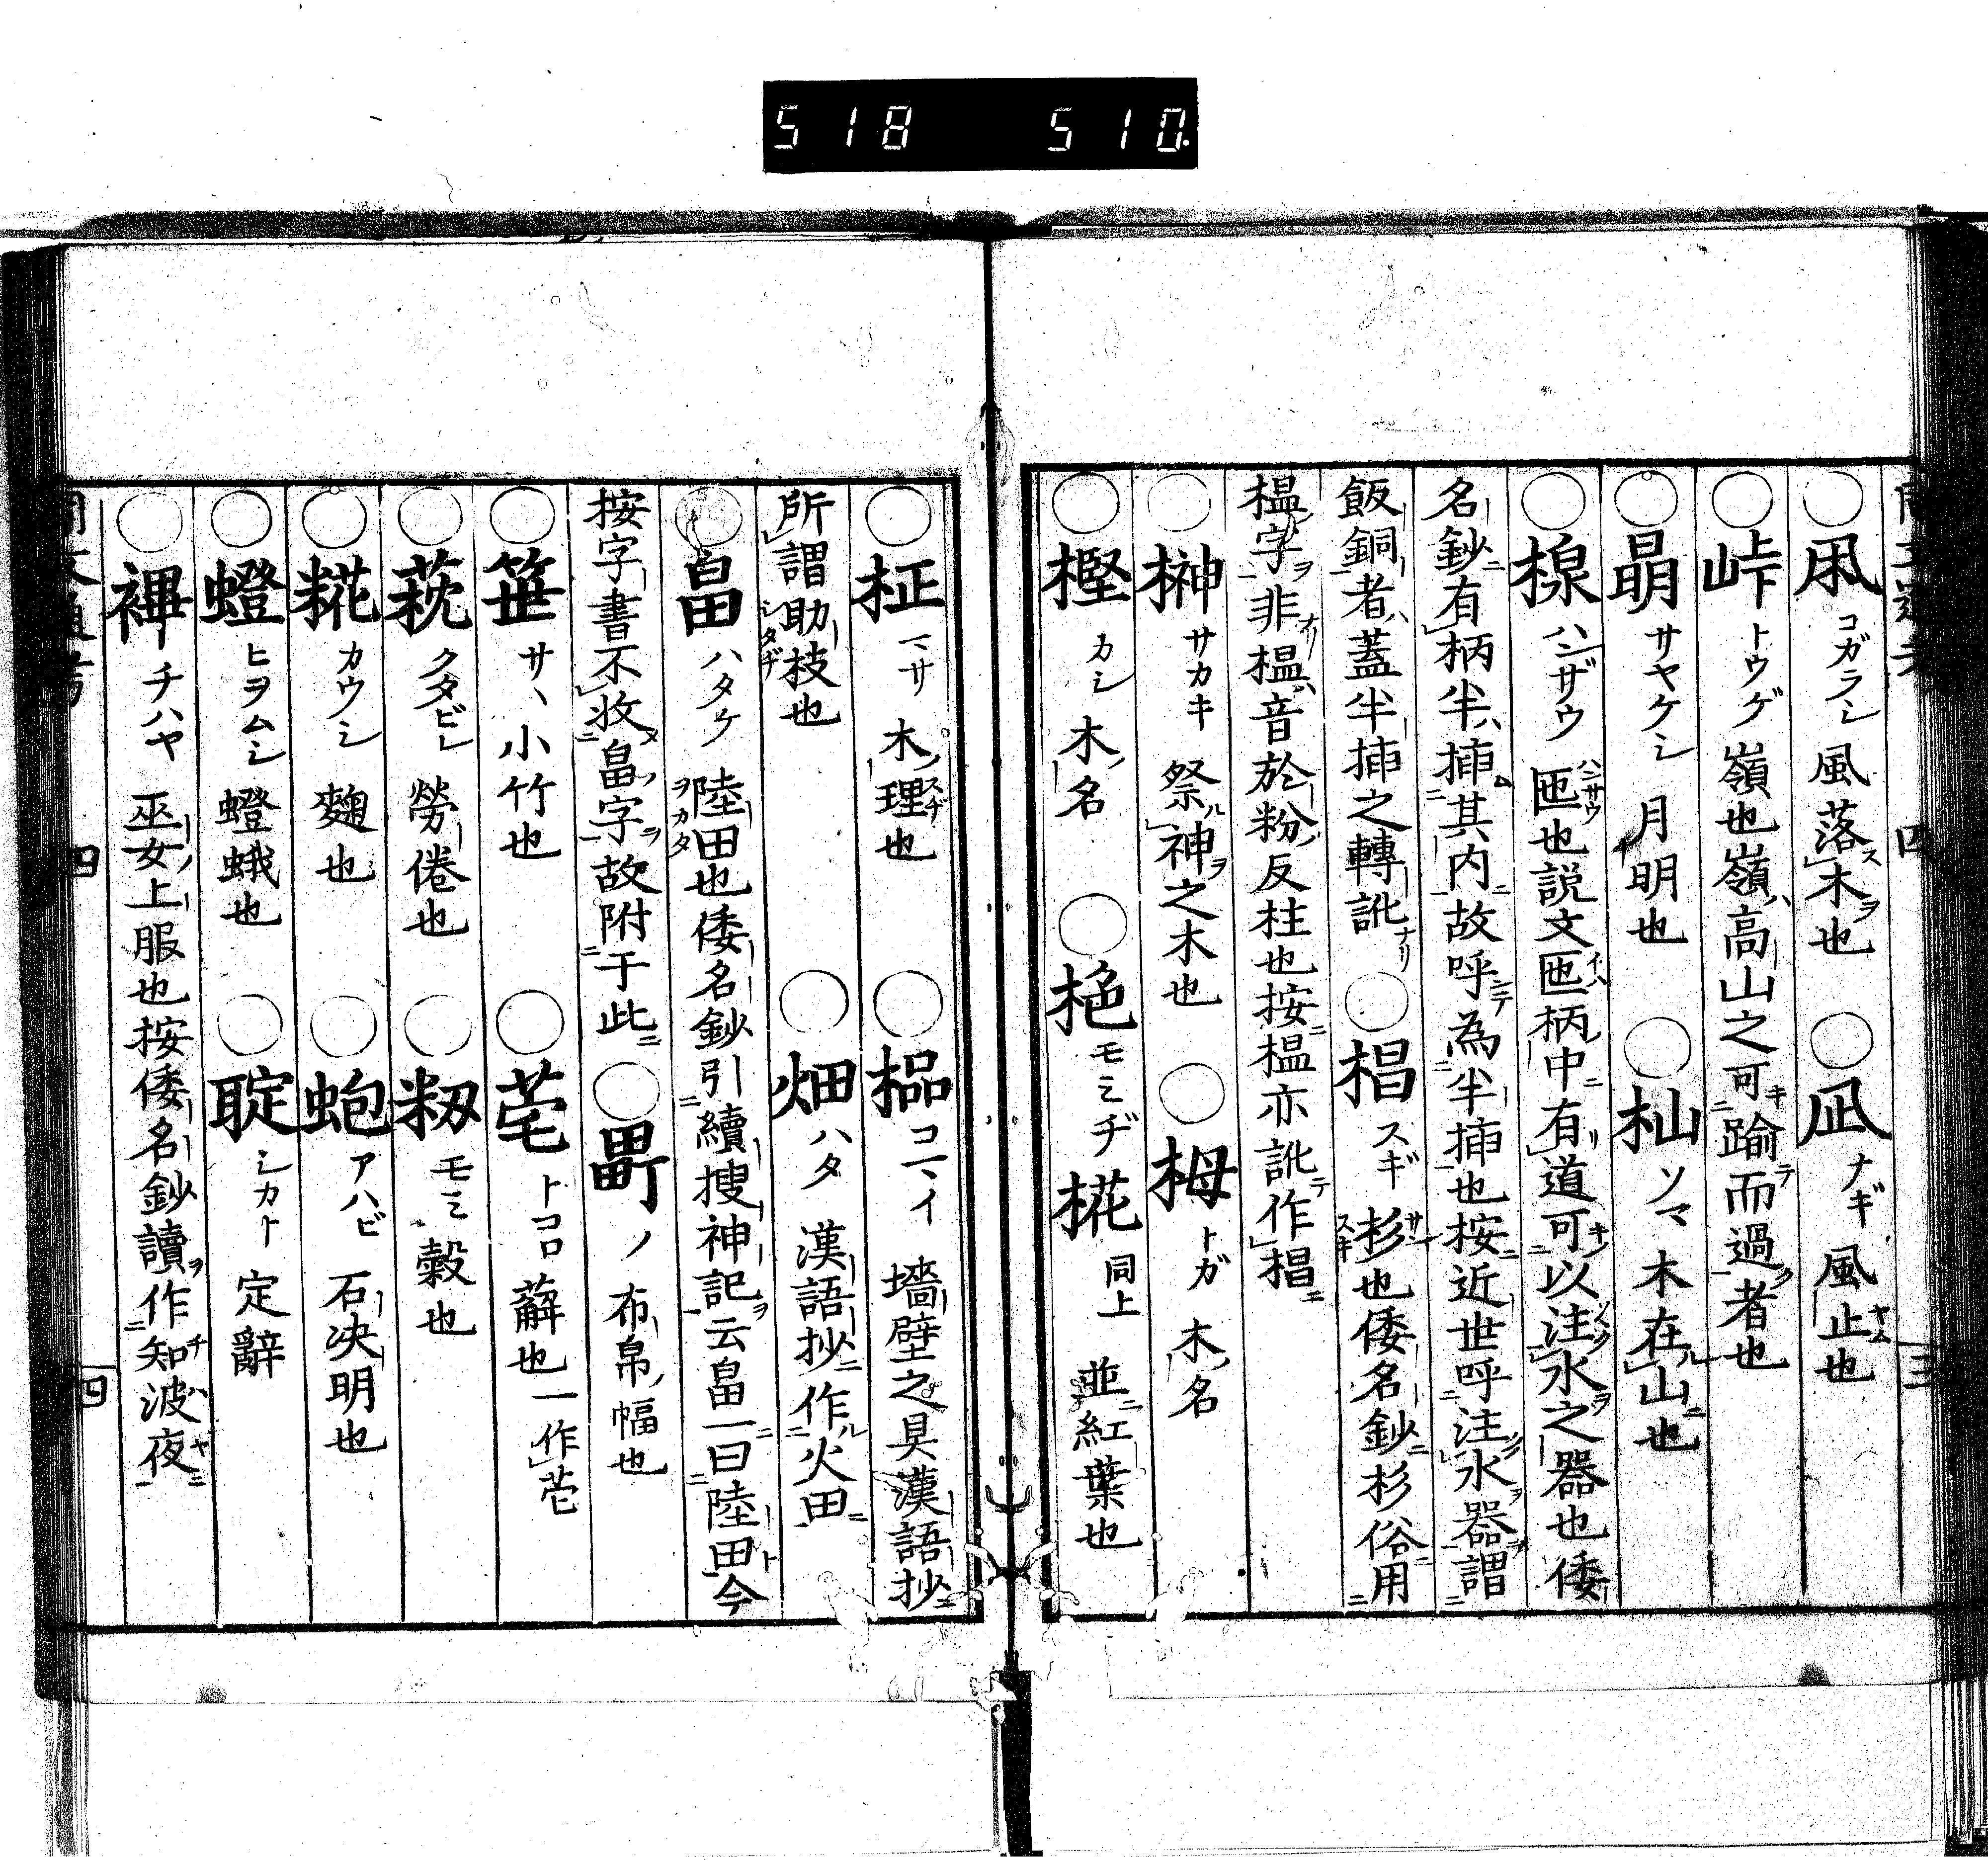 518 510
○凩 コガラシ 風落木也 ○凪 ナギ 風止也
○峠 トウゲ 嶺也嶺高山之可踰而過者也
○朤 サヤケシ 月明也 ○杣 ソマ 木在山也
○楾 ハンザウ 匜也説文匜柄中有道可以注水之器也倭
名鈔有柄半挿其内故呼為半挿也按近世呼注水器謂
飯銅者蓋半挿之轉訛 ○椙 スギ 杉也倭名鈔杉俗用
榲字非榲音於粉反柱也按榲亦訛作椙
○榊 サカキ 祭神之木也 ○栂 トガ 木名
○樫 カシ 木名 ○栬 モミヂ 椛 同上 並紅葉也
○柾 マサ 木理也 ○榀 コマイ 墻壁之具漢語抄
所謂助枝也 ○畑 ハタ 漢語抄作火田
○畠 ハタケ 陸田也倭名鈔引續搜神記云畠一曰陸田今
按字書不收畠字故附于此 ○ ノ 布帛幅也
○笹 サヽ 小竹也 ○萙 トコロ 薢也一作𦭕
○莬 クタビレ 勞倦也 ○籾 モミ 穀也
○糀 カウシ 麹也 ○蚫 アハビ 石决明也
○蟶 ヒヲムシ 蛾也 ○聢 シカト 定辭
○襅 チハヤ 巫女上服也按倭名鈔讀作知波夜
四
四